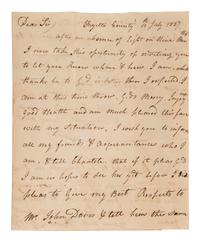 Dear Sir Fayette County 10th July 1827
after an absence of Eight or Nine
I now take this opportunity of writing you
to let you know where & how I am, who
thanks be to God is better than I expected I
am at this time thro' God's Mercy Enjoy
Good Health and am much pleased this far
with my Situation, I wish you to inform
all my friends & Acquaintances who I
am, & tell Charlotte that if it pleas God
I am in hopes to see her yet before I
pleas to Give my Best Respects to
Mr John Davis & tell him the same